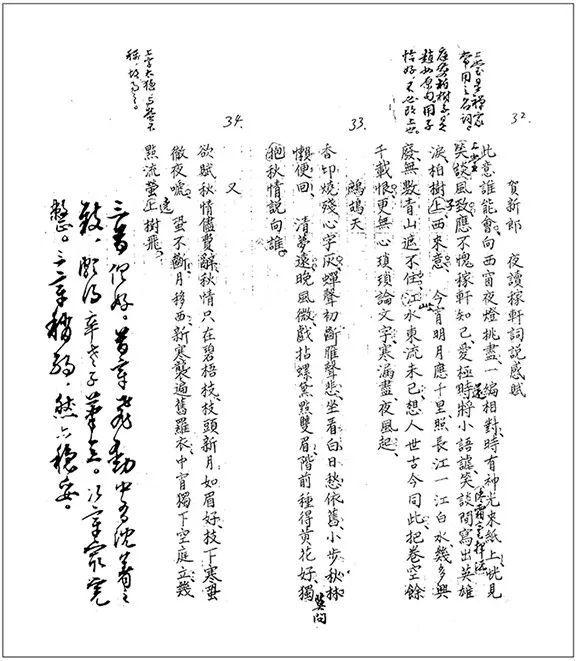 上堂是禪家
常用之名詞。
庭前柏樹子是
趙州原句用子
恰好，不必改上也
32.
賀新郎　夜讀稼軒詞說感賦
此意誰能會。向西窗夜燈挑盡、一編相對。時有神光來紙上、恍見
上堂
笑談風致。應不愧稼軒知己。愛極時將小語謔、笑談間寫出英雄
淚。柏樹上、西來意。　今宵明月應千里。照長江一江白水、幾多興
子
廢。無數青山遮不住、江水東流未已。想人世古今同此。把卷空餘
千載恨、更無心瑣瑣論文字。寒漏盡、夜風起。
33.
鷓鴣天
香印燒殘心字灰。蟬聲初斷雁聲悲。坐看白日愁依舊、小步秋林
懶便回。　清夢遠、晚風微。戲拈螺黛點雙眉。階前種得黃花好、獨
莫問
抱秋情說向誰。
34.
又
欲賦秋情儘費辭。秋情只在碧梧枝。枝頭新月如眉好、枝下寒螿
徹夜嘶。　蛩不斷、月移西。新寒襲遍舊羅衣。中宵獨下空庭立、幾
點流螢上樹飛。
遶
三首俱好。首章飛動中有沈著之
致，頗得辛老子筆意。次章最完
整。三章稍弱，然亦穩妥。